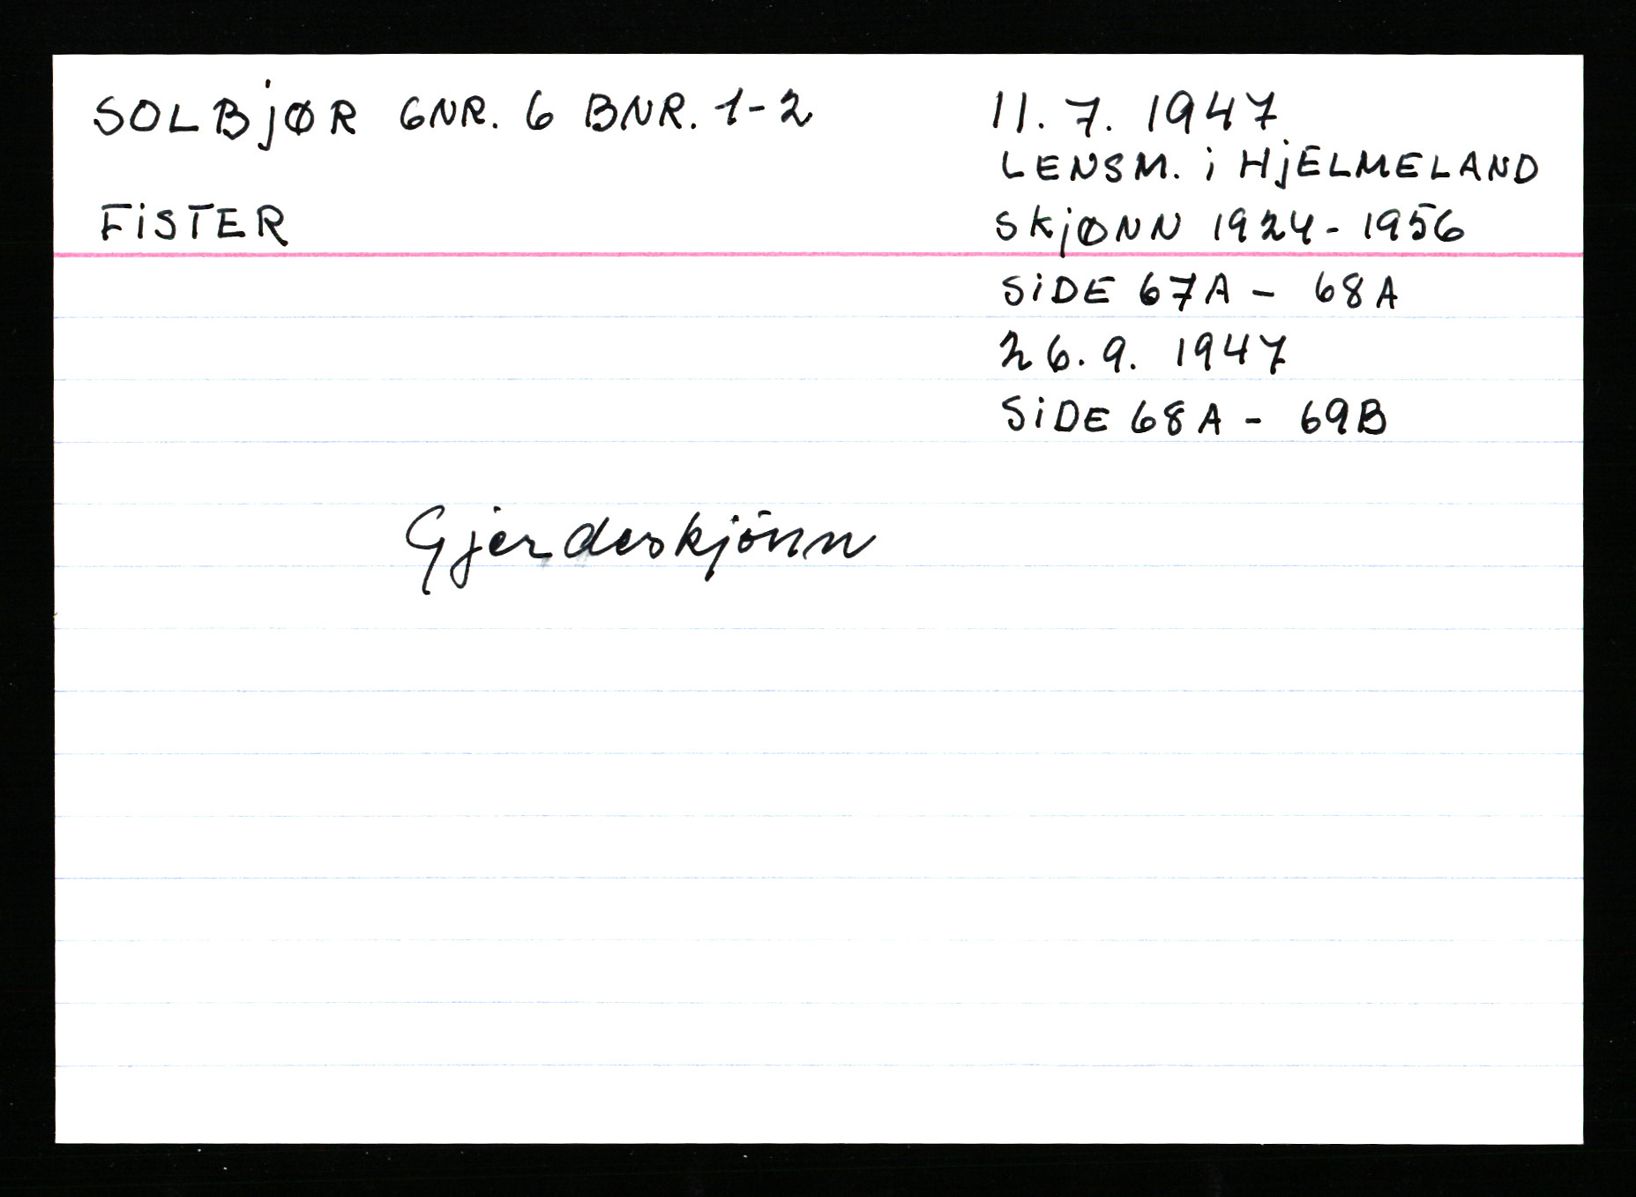 SOLBJØR GNR. 6 BNR. 1-2
FISTER
11. 7. 1947
LENSM. i HJELMELAND
SKJØNN 1924 - 1956
SIDE 67A - 68A
26. 9. 1947
SIDE 68A - 69B
Gjerdeskjönn